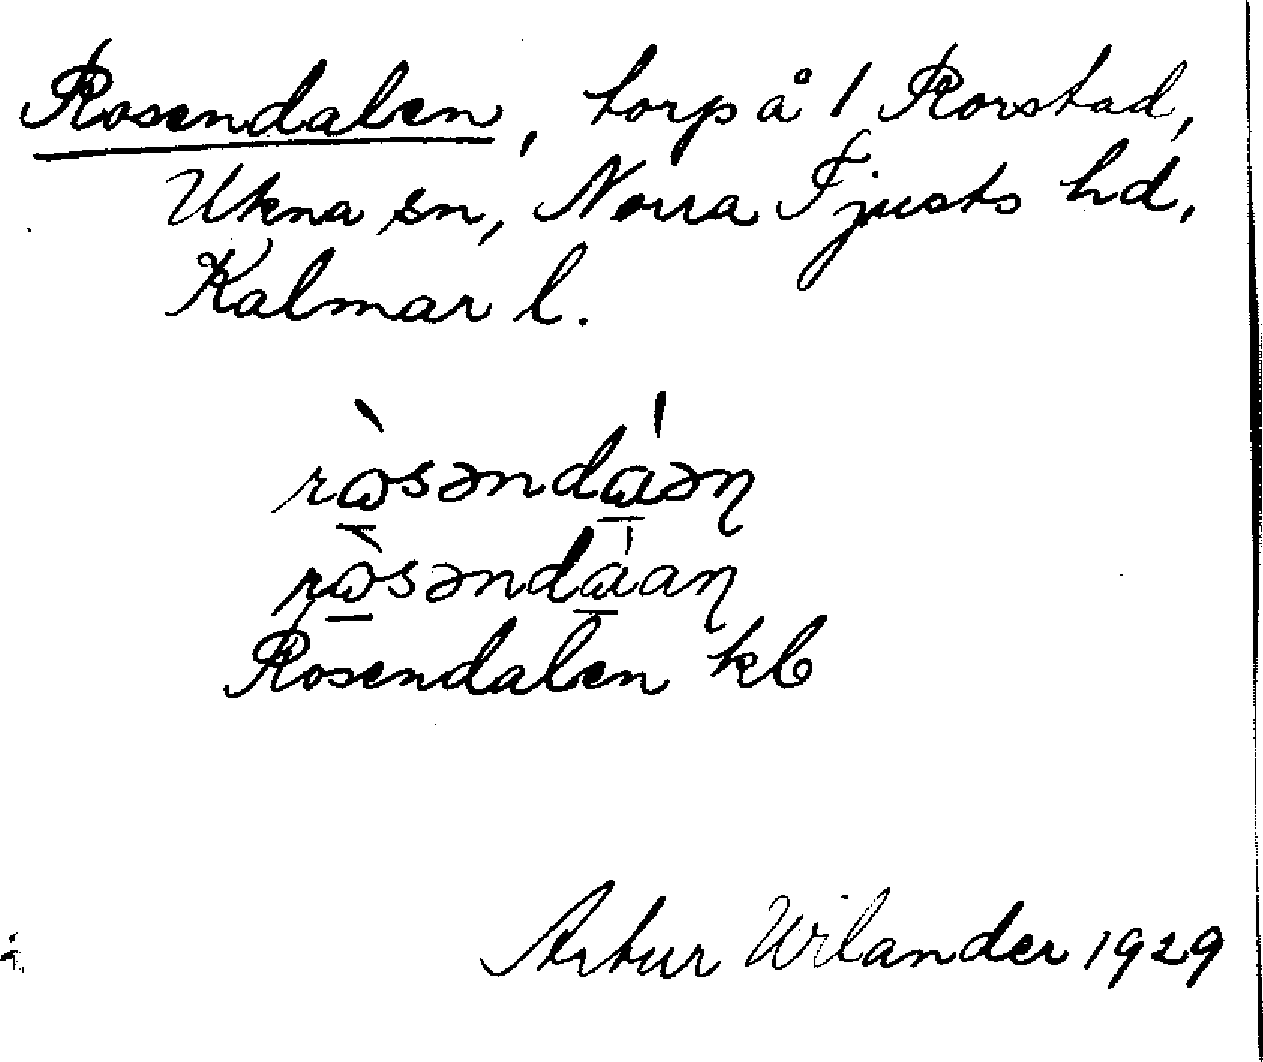 Rosendalen, torp å 1 Rorstad,
Ukna sn, Norra Tjusts hd,
Kalmar l.
rὼ̲səndά̲əɳ
rὼ̲səndά̲aɳ
Rosendalen kb
Artur Wilander 1929